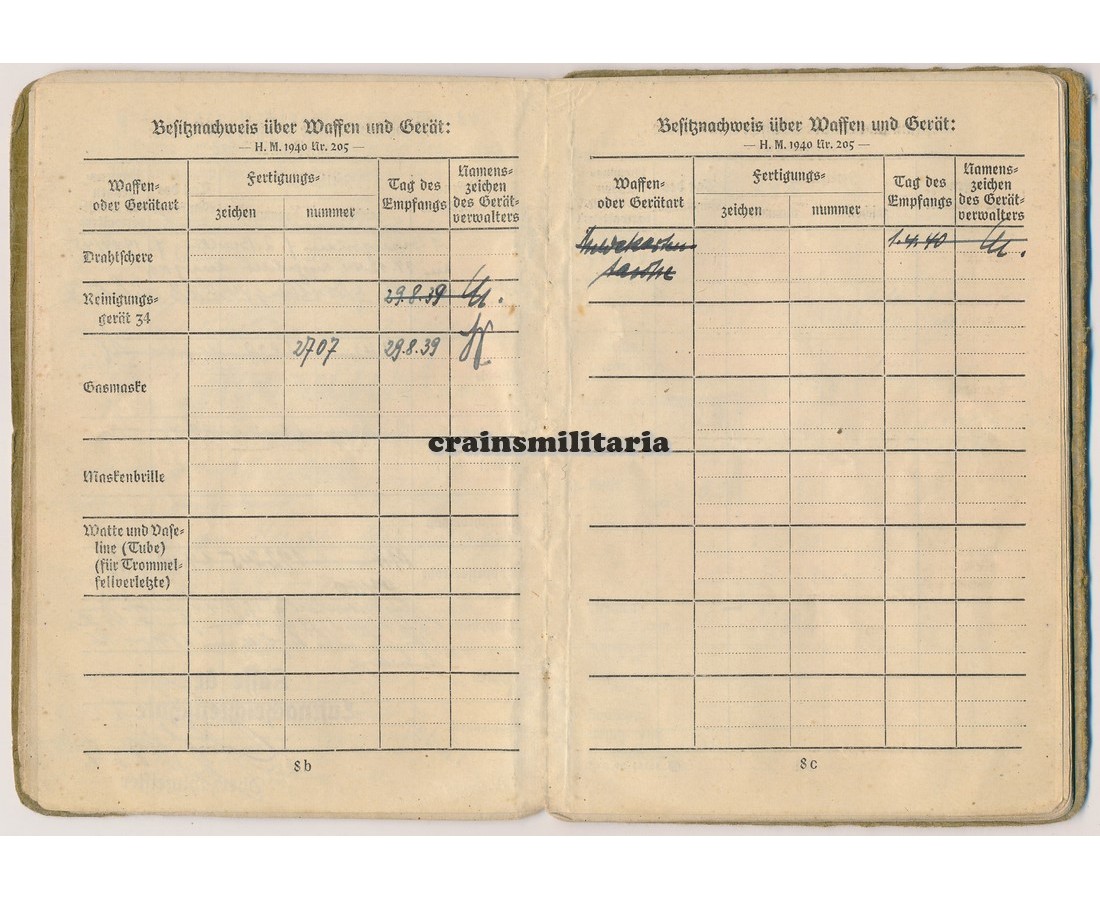 Besitznachweis über Waffen und Gerät:
— H. M. 1940 Nr. 205 —
Waffen- oder Gerätart
Fertigungs-
zeichen
nummer
Tag des Empfangs
Namens-zeichen des Gerät-verwalters
Drahtschere
Reinigungs-
gerät 34
29.8.39
Gasmaske
2707
29.8.39
Maskenbrille
Watte und Vase-
line (Tube)
(für Trommel-
fellverletzte)
8b
Besitznachweis über Waffen und Gerät:
— H. M. 1940 Nr. 205 —
Waffen- oder Gerätart
Fertigungs-
zeichen
nummer
Tag des Empfangs
Namens-zeichen des Gerät-verwalters
Meldekarten
tasche
1.4.40
8c
crainsmilitaria